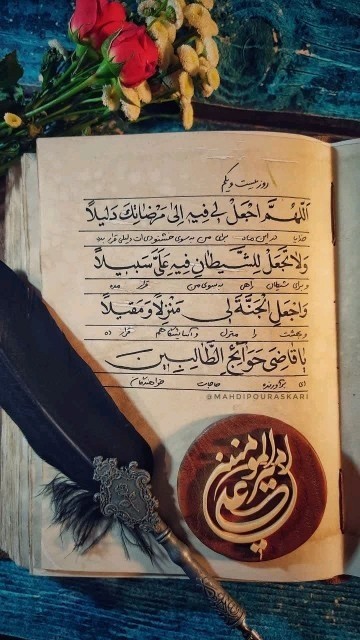 روز بیست و یکم
اَللّهُمَّ اجْعَلْ لی فیهِ اِلی مَرْضاتِکَ دَلیلاً
خدایا در این ماه برای من به سوی خشنودی ات دلیلی قرار بده
وَلا تَجْعَلْ لِلشَّیْطانِ فیهِ عَلَیَّ سَبیلاً
و برای شیطان راهی به سوی من قرار مده
وَاجْعَلِ الْجَنَّةَ لی مَنْزِلاً وَمَقیلاً
و بهشت را منزل و آسایشگاهم قرار ده
یا قاضِیَ حَوآئِجِ الطّالِبینَ
ای برآورنده حاجات خواهندگان
@MAHDIPOURASKARI
امیرالمومنین علی